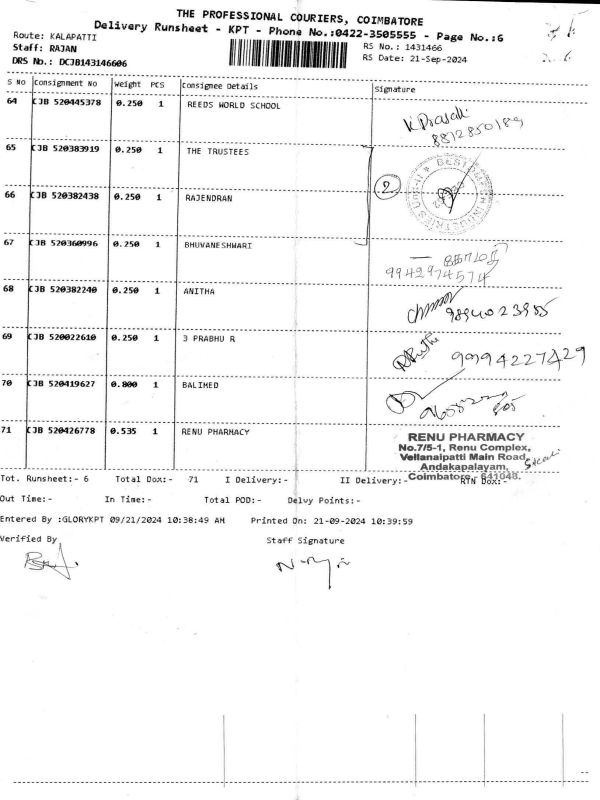 THE PROFESSIONAL COURIERS, COIMBATORE
Delivery Runsheet - KPT - Phone No.:0422-3505555 - Page No.:6
Route: KALAPATTI
RS No.: 1431466
Staff: RAJAN
RS Date: 21-Sep-2024
DRS No.: DCJB143146606
S No Consignment No Weight PCS Consignee Details Signature
64 CJB 520445378 0.250 1 REEDS WORLD SCHOOL
K Prasath
8812850189
65 CJB 520383919 0.250 1 THE TRUSTEES
2
66 CJB 520382438 0.250 1 RAJENDRAN
67 CJB 520360996 0.250 1 BHUVANESHWARI
9942974574
68 CJB 520382240 0.250 1 ANITHA
9894023985
69 CJB 520022610 0.250 1 3 PRABHU R
9994227429
70 CJB 520419627 0.800 1 BALIMED
71 CJB 520426778 0.535 1 RENU PHARMACY
RENU PHARMACY
No.7/5-1, Renu Complex,
Vellanaipatti Main Road,
Andakapalayam,
Coimbatore - 641048.
Tot. Runsheet:- 6 Total Dox:- 71 I Delivery:- II Delivery:- RTN Dox:-
Out Time:- In Time:- Total POD:- Delvy Points:-
Entered By :GLORYKPT 09/21/2024 10:38:49 AM Printed On: 21-09-2024 10:39:59
Verified By Staff Signature